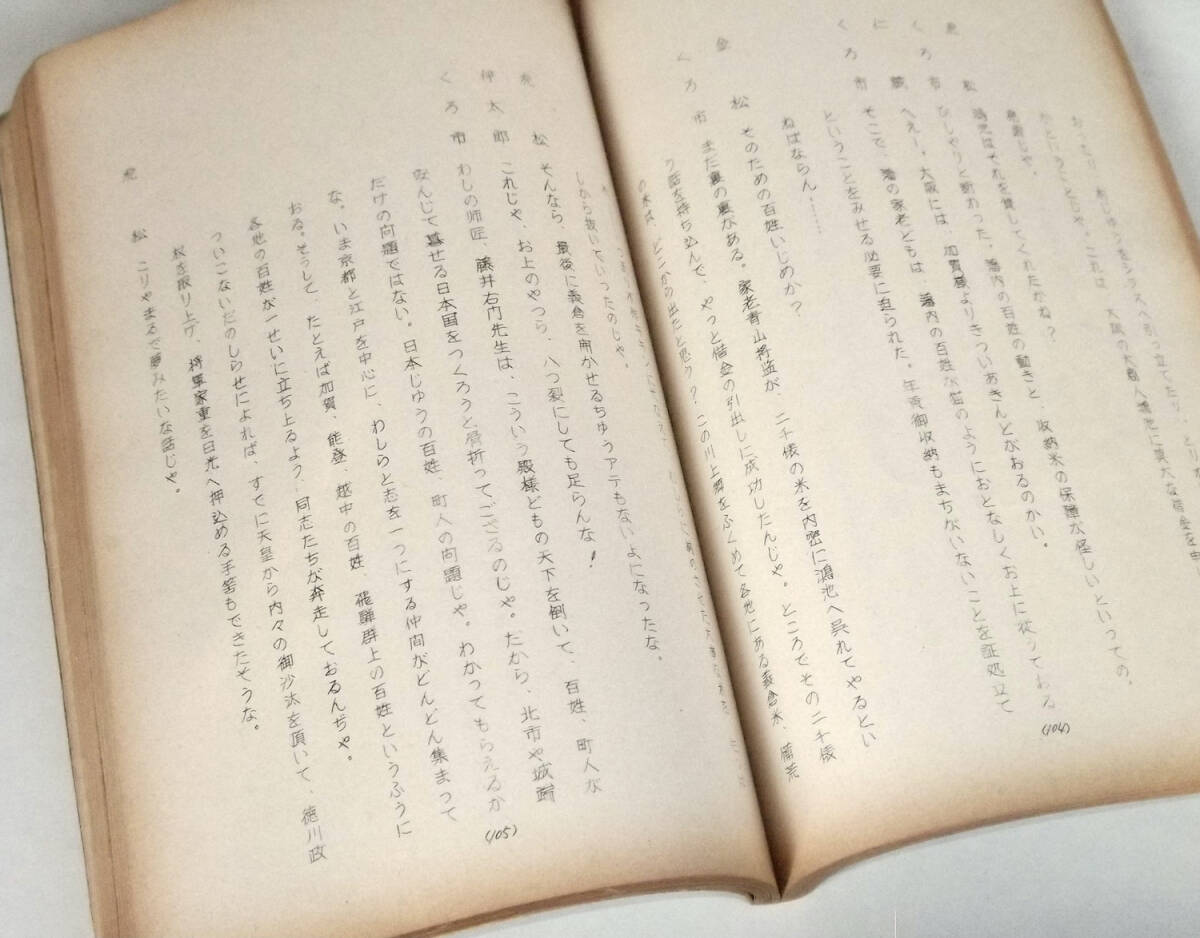 かということじゃ。これは、大阪の大商人鴻池に莫大な借金を申
鴻池はそれを貸してくれたかね？
くろ市 ぴしゃりと断わった。藩内の百姓の動きと、収納米の保障が怪しいといっての。
へえー。大阪には、加賀藩よりきついあきんどがおるのかい。
くろ市 そこで、藩の家老どもは、藩内の百姓が猫のようにおとなしくお上に従っておる
ということをみせる必要に迫られた。年貢御収納もまちがいないことを証処立て
ねばならん……
金松 そのための百姓いじめか？
くろ市 まだ裏の裏がある。家老青山将監が、二千俵の米を内密に鴻池へ呉れてやるとい
う話を持ち込んで、やっと借金の引出しに成功したんじゃ。ところでその二千俵
の米は、どこから出たと思う？、この川上郷をふくめて各地にある義倉米、備荒
(104)
しから抜いていったのじゃ。
松 そんなら、最後に義倉を開かせるちゅうアテもないよになったな。
伸太郎 これじゃ、お上のやつら、八つ裂にしても足らんな！
くろ市 わしの師匠、藤井右門先生は、こういう殿様どもの天下を倒いて、百姓、町人な
なんじて暮せる日本国をつくろうと、骨折ってござるのじゃ。だから、北市や城端
だけの問題ではない。日本じゅうの百姓、町人の問題じゃ。わかってもらえるか
な。いま京都と江戸を中心に、わしらと志を一つにする仲間がどんどん集まって
おる。そうして、たとえば加賀、能登、越中の百姓、飛騨群上の百姓というふうに
各地の百姓が一せいに立ち上るよう、同志たちが奔走しておるんぢゃ。
ついこないだのしらせによれば、すでに天皇から内々の御沙汰を頂いて、徳川政
权を取り上げ、将軍家重を日光へ押込める手筈もできたそうな。
松 こりゃまるで夢みたいな話じゃ。
(105)